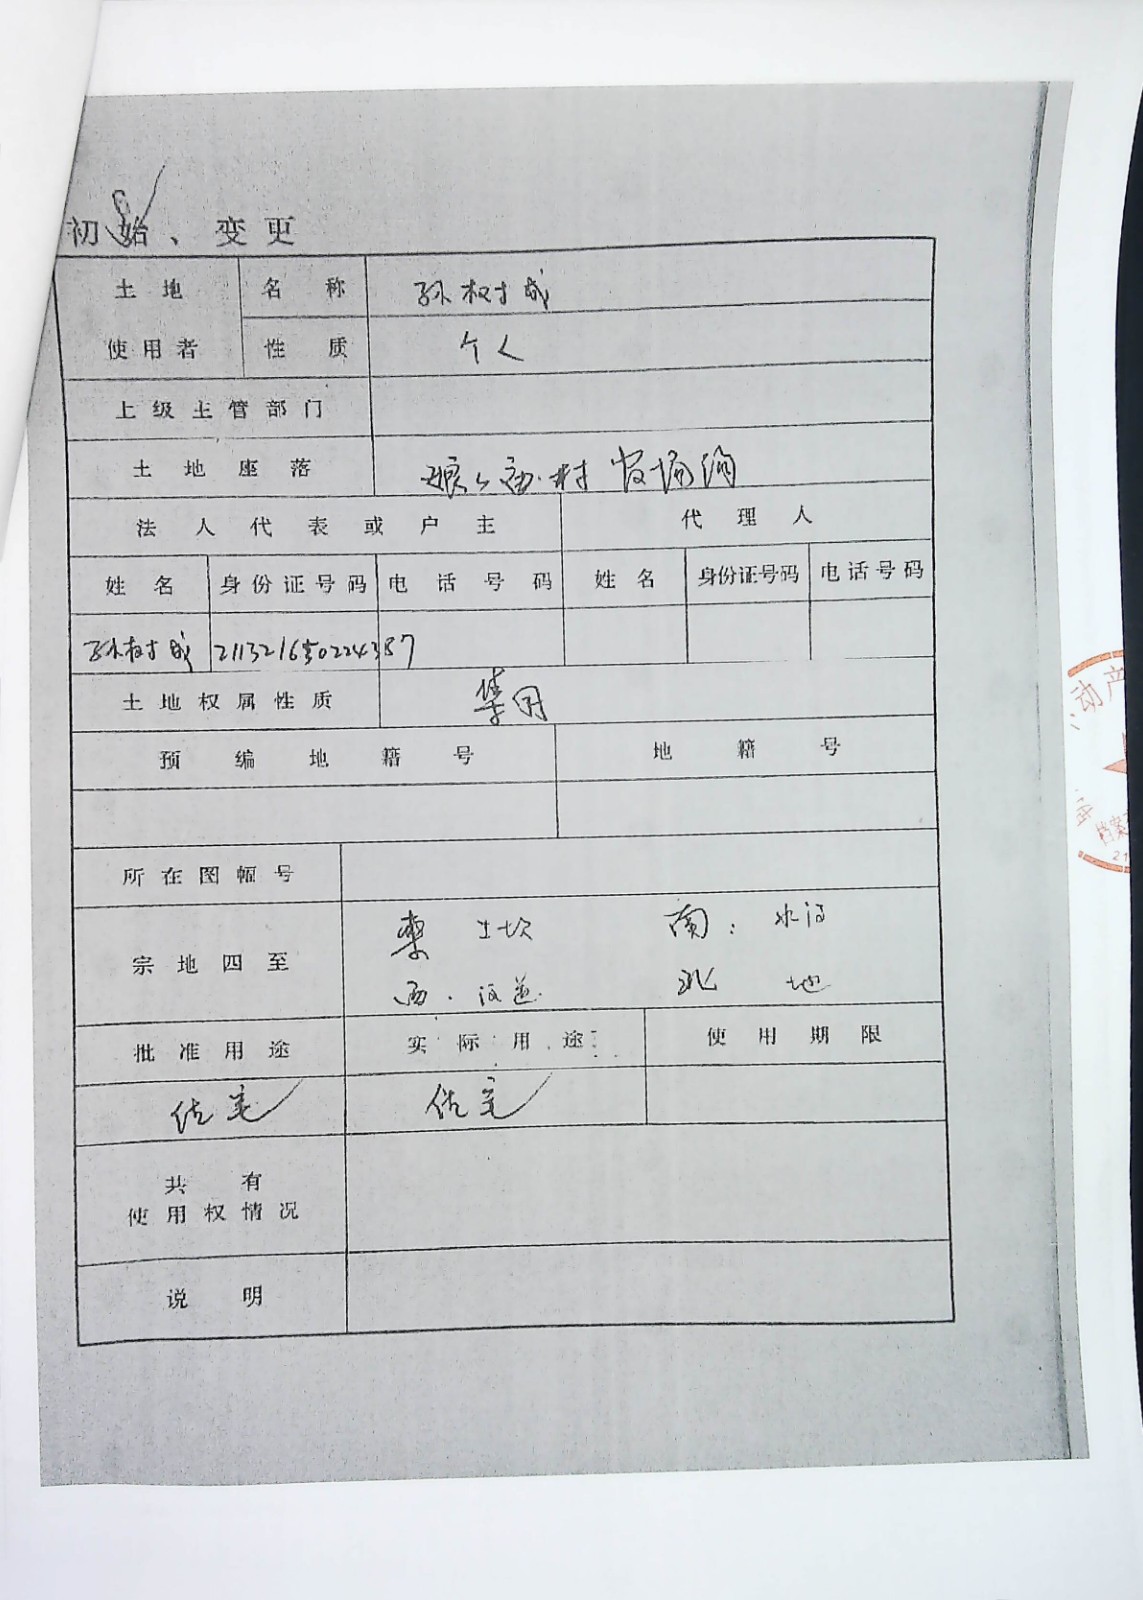 初始、变更
土地使用者 名称 孙树成
性质 个人
上级主管部门
土地座落 娘娘庙村
法人代表或户主 代理人
姓名 身份证号码 电话号码 姓名 身份证号码 电话号码
孙树成 211321650224387
土地权属性质 集用
预编地籍号 地籍号
所在图幅号
宗地四至 东 土坎 南：水沟
西 河道 北 地
批准用途 实际用途 使用期限
住宅 住宅
共有
使用权情况
说明
动产
档案
21